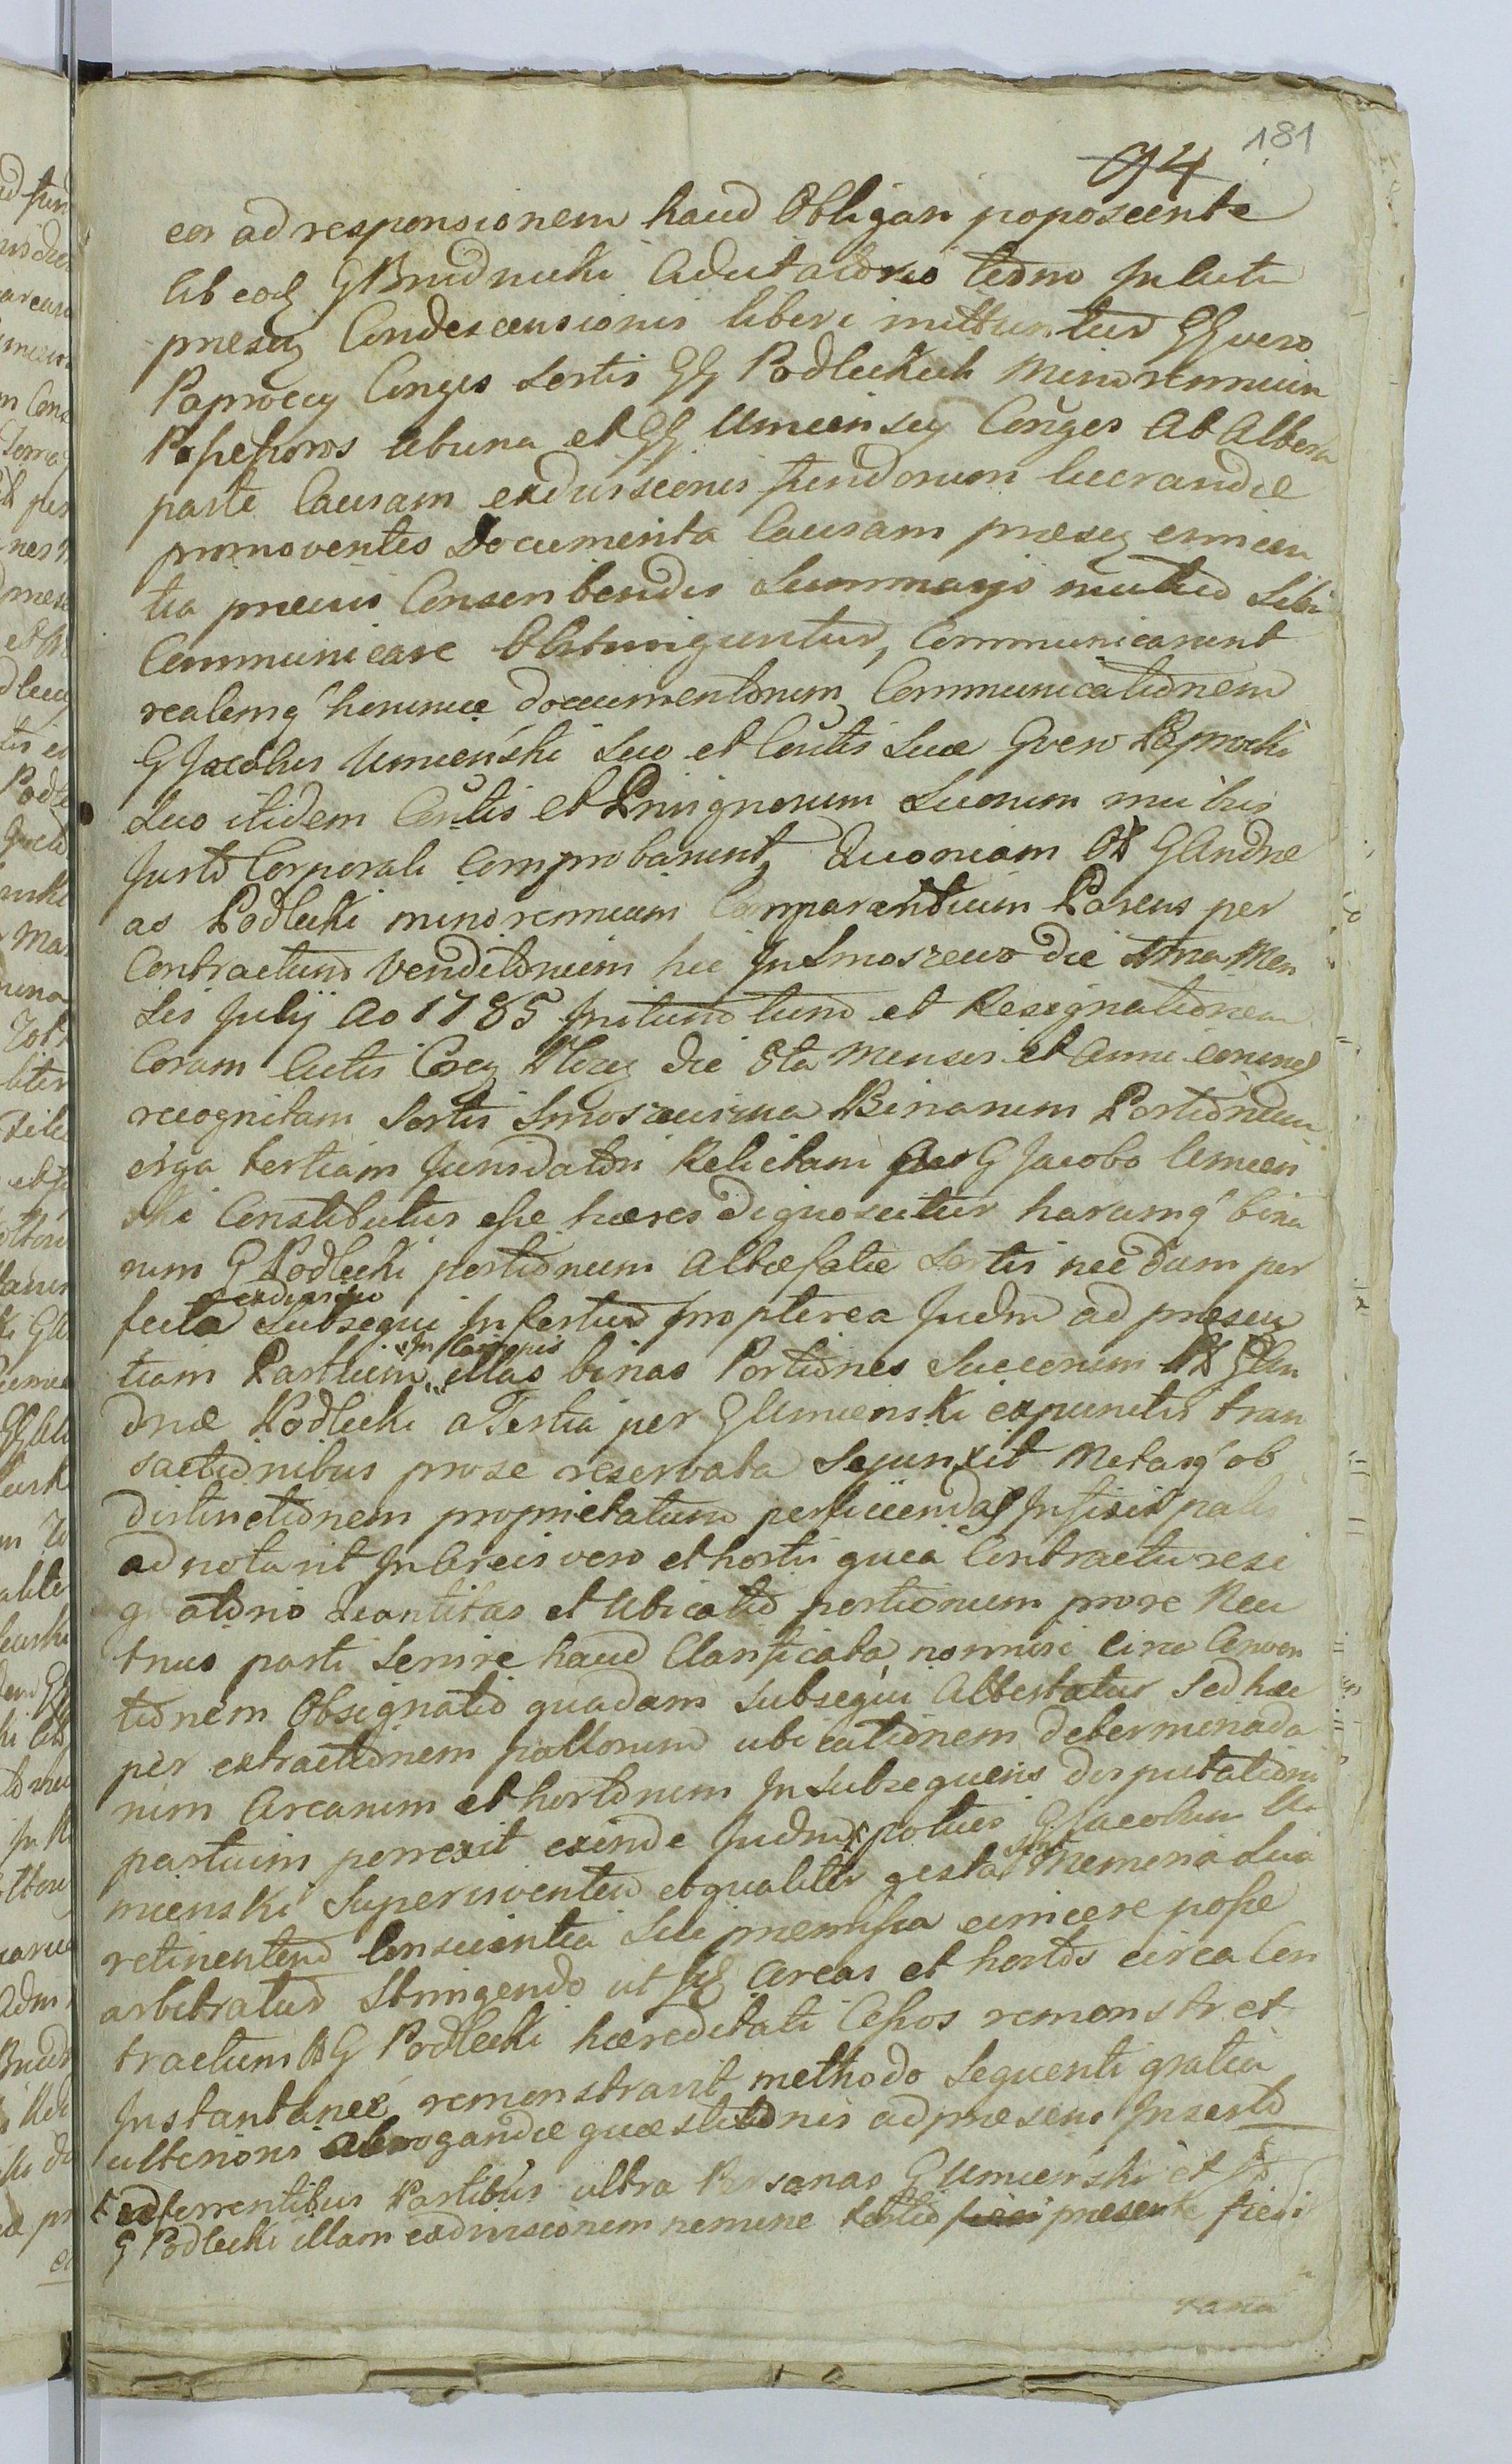 181
94
eos ad responsionem haud Obligari poposcente
ab eodꝫ G Brudnicki Actutatorio termino In Actu
præseꝫ Condescensionis liberi mittuntur GG vero
Paproccy Conges sortis GG Podleckich Minorennium
Possessores ab una et GG Umieńscy Conges Ab Altera
parte Causam exdivisionis fundorum lucrandæ
promoventes Documenta Causam præseꝫ evincen
tia præviis Conscribendis Summarijs mutuo Sibi
Communicare Obstringuntur, Communicarunt
realemq' horumce documentorum Communicationem
G Jacobus Umieński Suo et Contis Suæ G vero Paprocki
Suo itidem Contis et Privignorum Suorum nnibus
Jurto Corporali Comprobarunt, Quoniam Ol G Andre
as Podlecki minorennium Comparentium Parens per
Contractum Venditorium hic In Smoszewo die Ma Men
sis Julij Ao 1785 Initum tum et Resignationem
Coram Actis die 8ta Mensis et Anni eorund
recognitam Sortis Smoszewizna Binarum Portionum
erga tertiam Jurisdatori Relictam G Jacobo Umień
ski Constitutus esse hæres dignoscitur harumq' bina
rum G Podlecki portionum Altefatæ Sortis needum per
fecta exdivisio Subsequi Infertur propterea Judm ad præsen
tiam Partium illas binas Portiones Successorum Ol G An
dreæ Podlecki a Tertia per G Umienski expunctis tran
sactionibus pro se reservata Sejunxit Metasq' ob
distinctionem proprietatum perficiendas Infixis palis
adnotavit In Areis vero et hortis quea Contractu resi
gnatorio Quantitas et Ubicatio portionum prore Neu
trius parti Servire haud Clarificata nonnisi circa Conven
tionem Obsignatio quædam Subsequi Attestatur Sed hæc
per extractionem pallorum ubicationem determinada
rum Arearum et hortorum In Subsequens disputationi
partium perrexit exinde Judm potius G Jacobum U
mienski Superviventem etqualiter gesta sint Memoria Sua
retinentem Conscientia Sui præmissa evincere posse
arbitratur Stringendo ut Areas et hortos circa Con
tractum Ol G Podlecki hæreditati Cessos remonstret
Instantaneé remonstravit methodo Sequenti gratia
ulterioris abrogandæ quæstionis ad præsens Inserto
Edferrentibus Partibus ultra Personas G Umieński et
G Podlecki illam exdivisionem nemine tertio præsente fieri